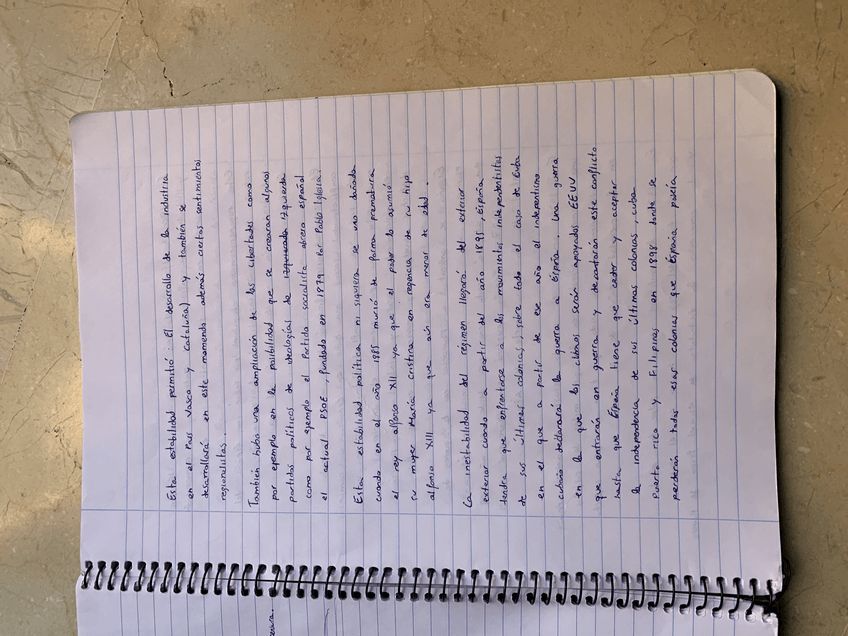 Esta estabilidad permitió. El desarrollo de la industria
en el Pais Vasco y Cataluña) y también se
desarrollará en este momendo además ciertos sentimientos
regionalistas.
También hubo una ampliación de las libertades como
por ejemplo en la posibilidad que se crearan algunos
partidos políticos de ideologías de izquierda
como por ejemplo el Partido socialista obrero español
el actual PSOE, fundado en 1879 por Pablo Iglesia.
Esta estabilidad política ni siquiera se vio dañada
cuando en el año 1985 murió de forma prematura
el rey alfonso XII ya que el poder lo asumió
su mujer María Cristina en regencia de su hijo
alfonso XIII ya que aún era menor de edad.
La inestabilidad del régimen llegará del exterior
exterior cuando a partir del año 1895, España
tendra que enfrentarse a los movimientos independentistas
de sus últimas colonias, sobre todo el caso de Cuba
en el que a partir de ese año el independismo
cubano declarará la guerra a España. Una guerra
en la que los cubanos serán apoyados EEUU
que entrarán en guerra y decantarán este conflicto
hasta que España tiene que ceder y aceptar
la independencia de sus últimas colonias, cuba
Puerto rico y Filipinas en 1898 donde se
perderán todas esas colonias que España poseía